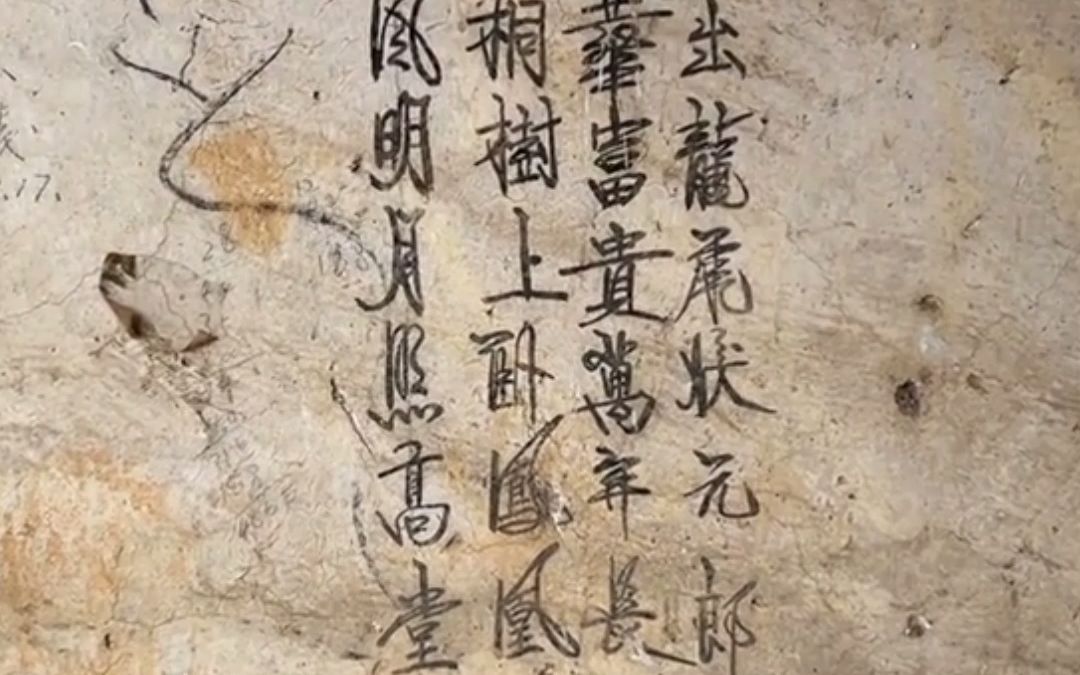 出龍尾狀元郎
華富貴萬年長
桐樹上卧鳳凰
風明月照高堂
17.